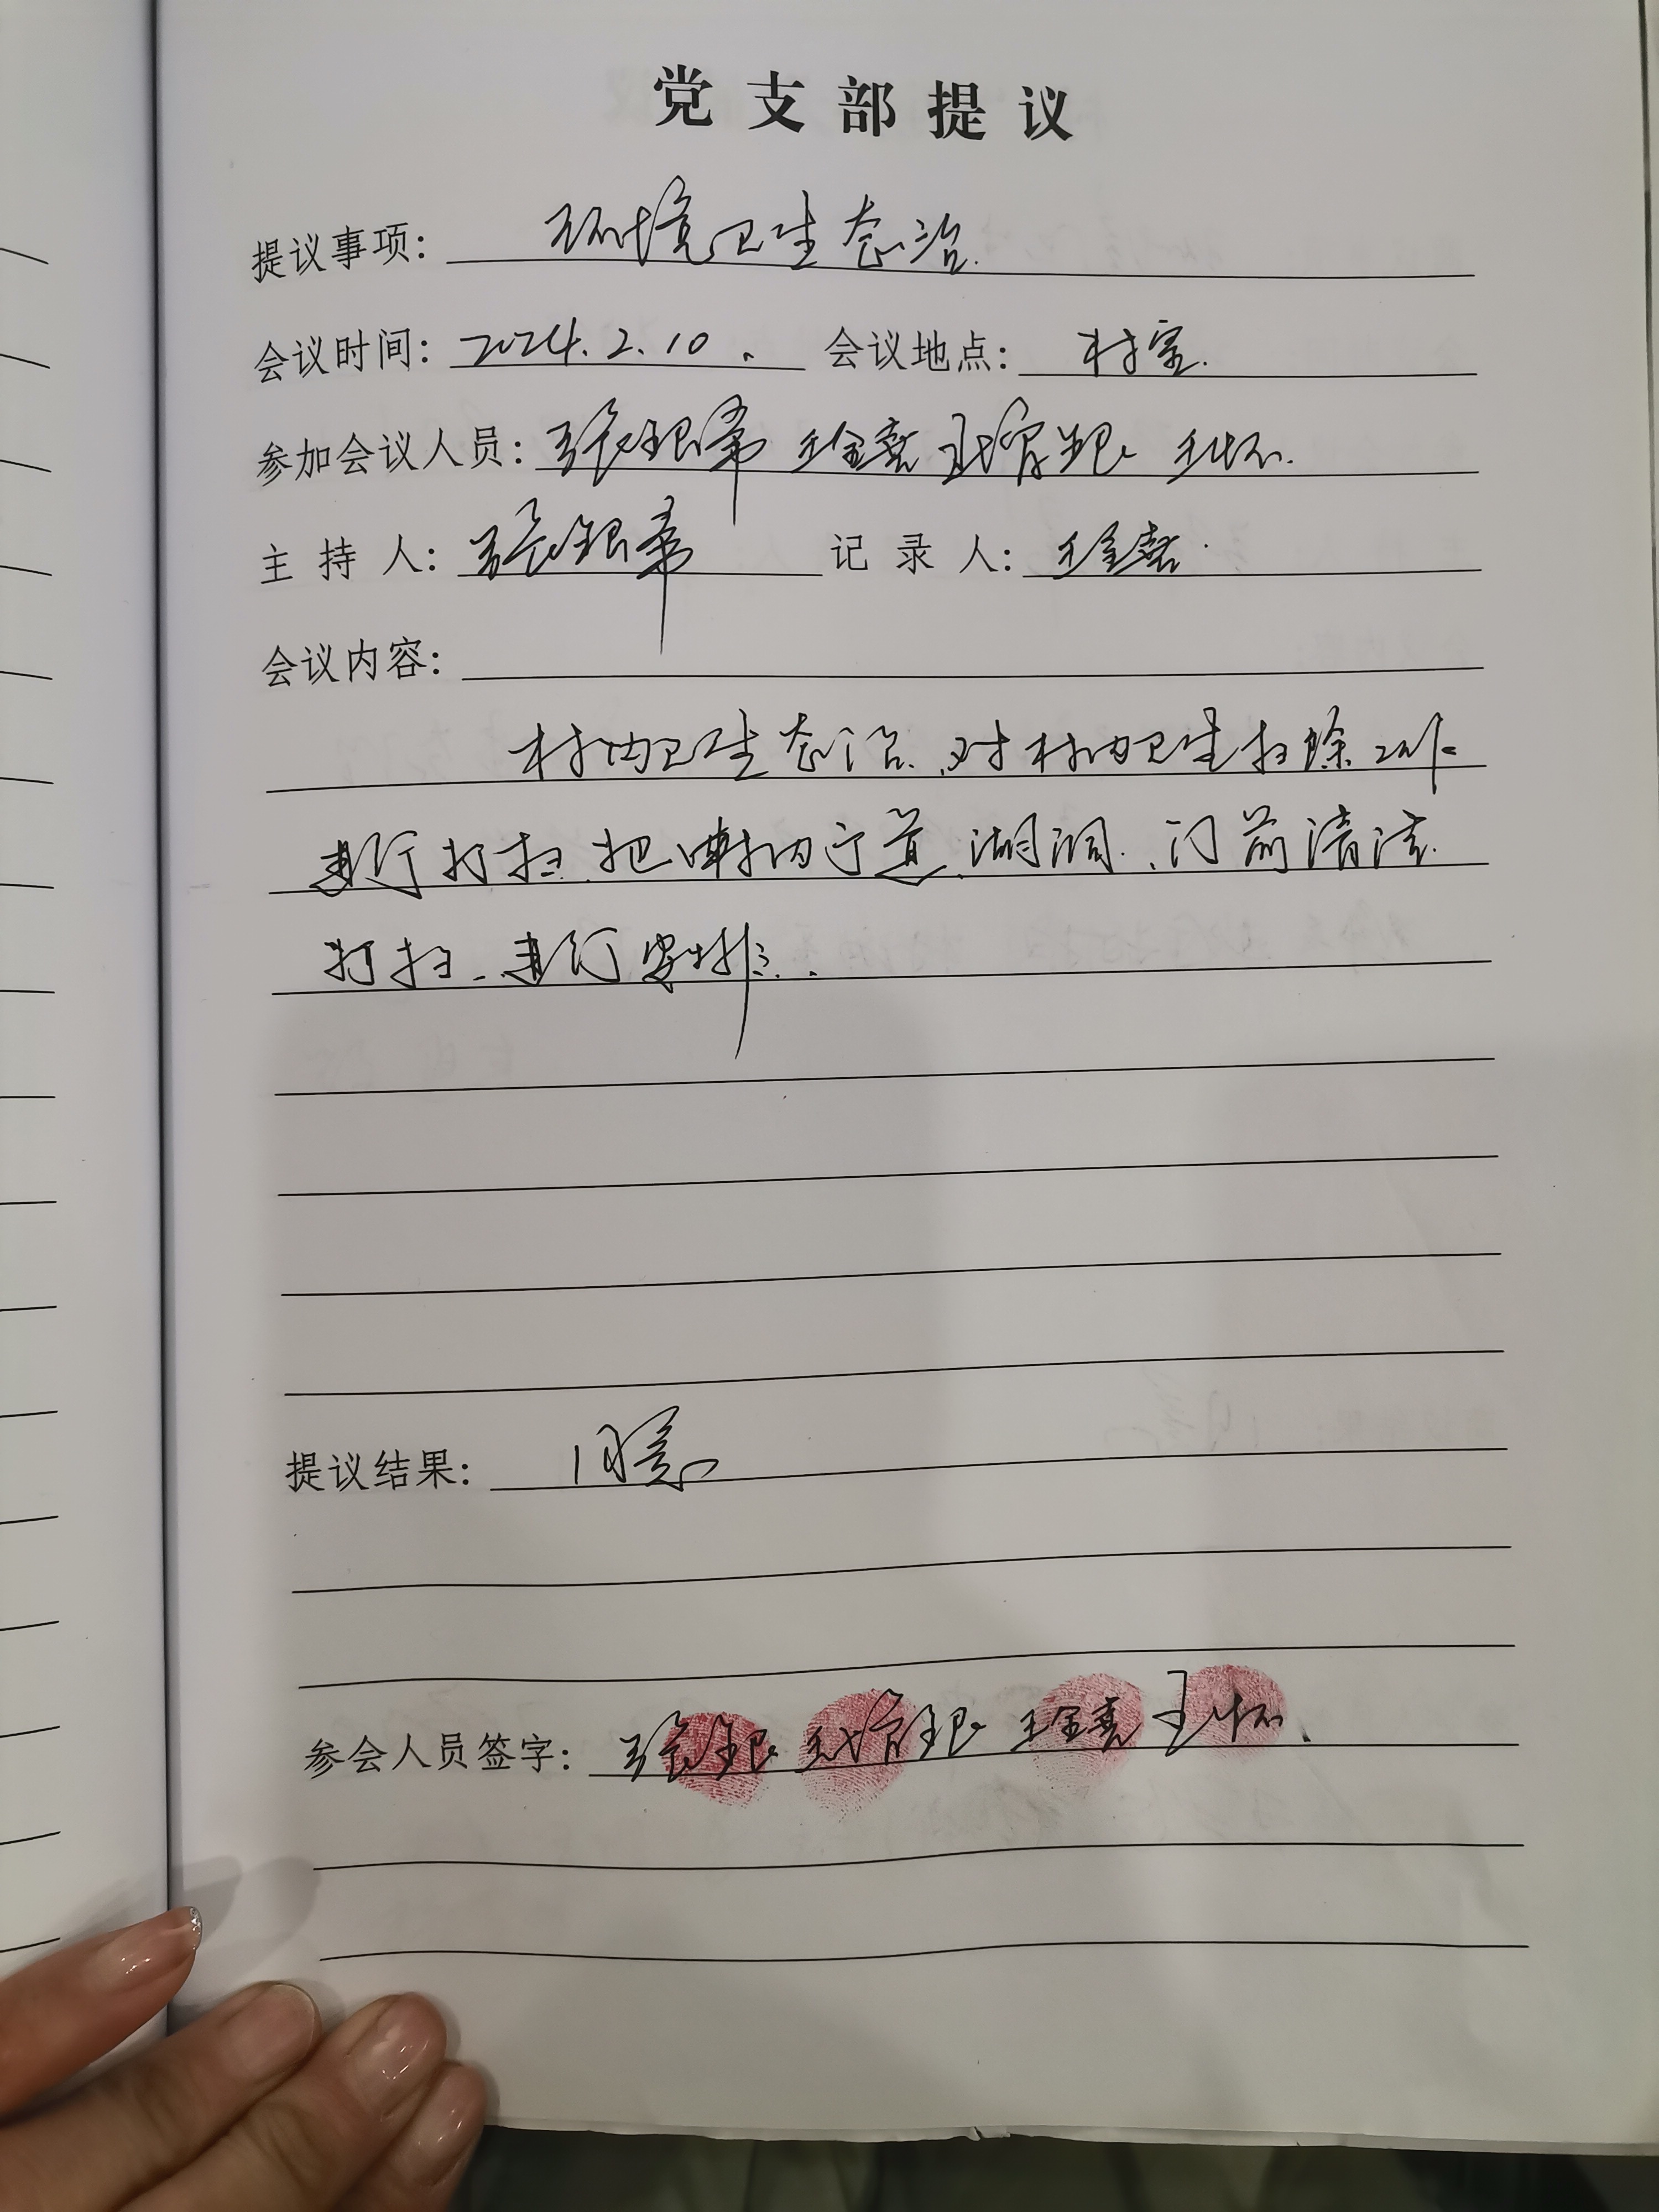 党支部提议
提议事项： 环境卫生态治.
会议时间： 2024.2.10. 会议地点： 村室.
参加会议人员： 张银 王金喜 王怀.
主 持 人： 张银 记 录 人： 王金喜.
会议内容：
村内卫生态治.对村内卫生扫除工作
进行打扫.把 村内 道.湖洞.门前清洁.
打扫.进行安排.
提议结果： 同意
参会人员签字： 张银 王金喜 王怀.